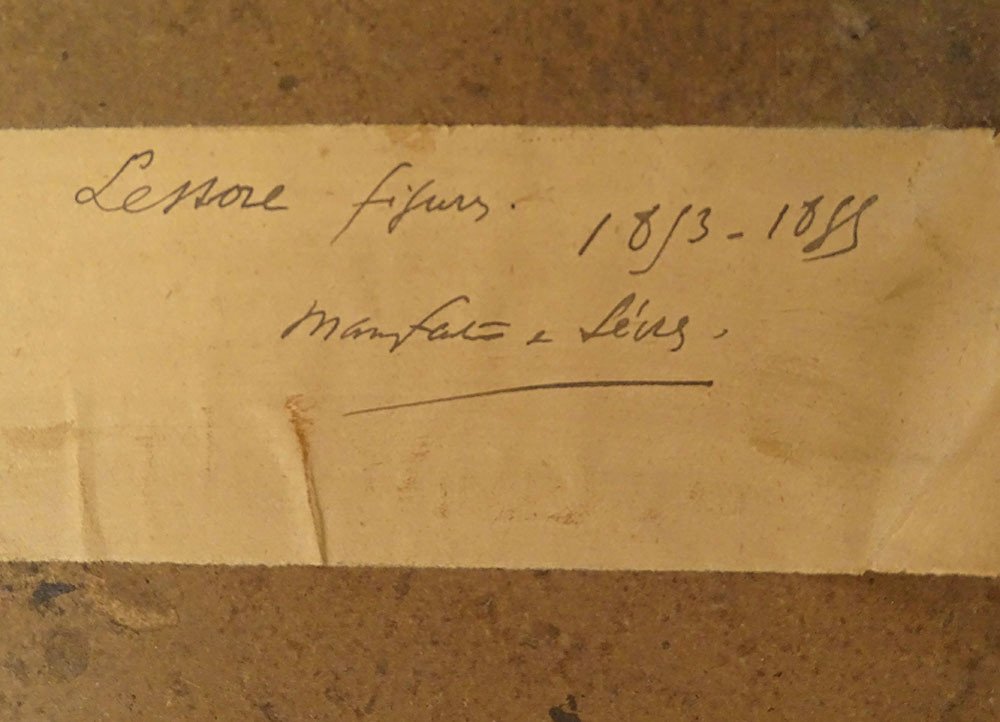 Lessore figures. 1853-1855
Manufacture de Sèvres.